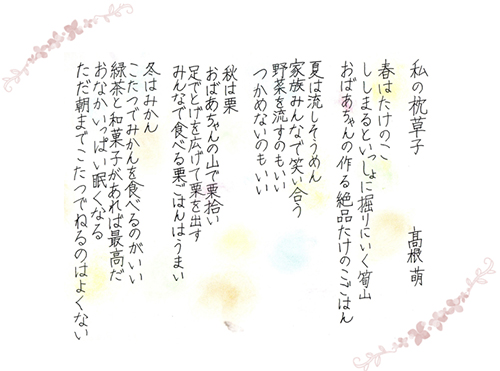 私の枕草子
髙根 萌
春はたけのこ
ししまるといっしょに掘りにいく筍山
おばあちゃんの作る絶品たけのこごはん
夏は流しそうめん
家族みんなで笑い合う
野菜を流すのもいい
つかめないのもいい
秋は栗
おばあちゃんの山で栗拾い
足でとげを広げて栗を出す
みんなで食べる栗ごはんはうまい
冬はみかん
こたつでみかんを食べるのがいい
緑茶と和菓子があれば最高だ
おなかいっぱい眠くなる
ただ朝までこたつでねるのはよくない